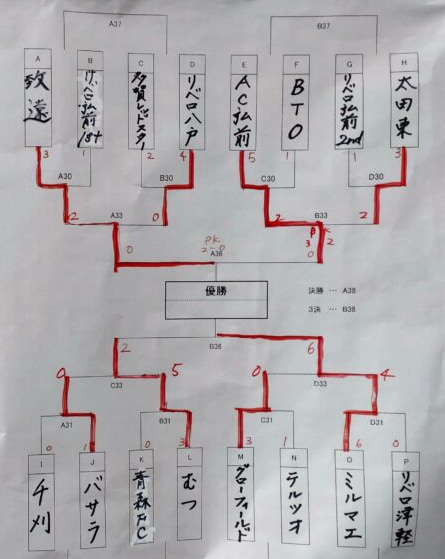 A37
B37
A
B
C
D
E
F
G
H
致遠
リベロ弘前1st
多賀レッドスター
リベロ八戸
AC弘前
BTO
リベロ弘前2nd
太田東
3
1
2
4
5
1
1
3
A30
B30
C30
D30
2
0
2
2
A33
B33
0
PK
2-0
PK
3 2
0
A36
優勝
決勝 … A38
3決 … B38
B36
2
6
0
5
0
4
C33
D33
A31
B31
C31
D31
0
1
0
3
3
1
6
0
I
J
K
L
M
N
O
P
千刈
バサラ
青森FC
むつ
グローフィールド
テルツオ
ミルマエ
リベロ津軽